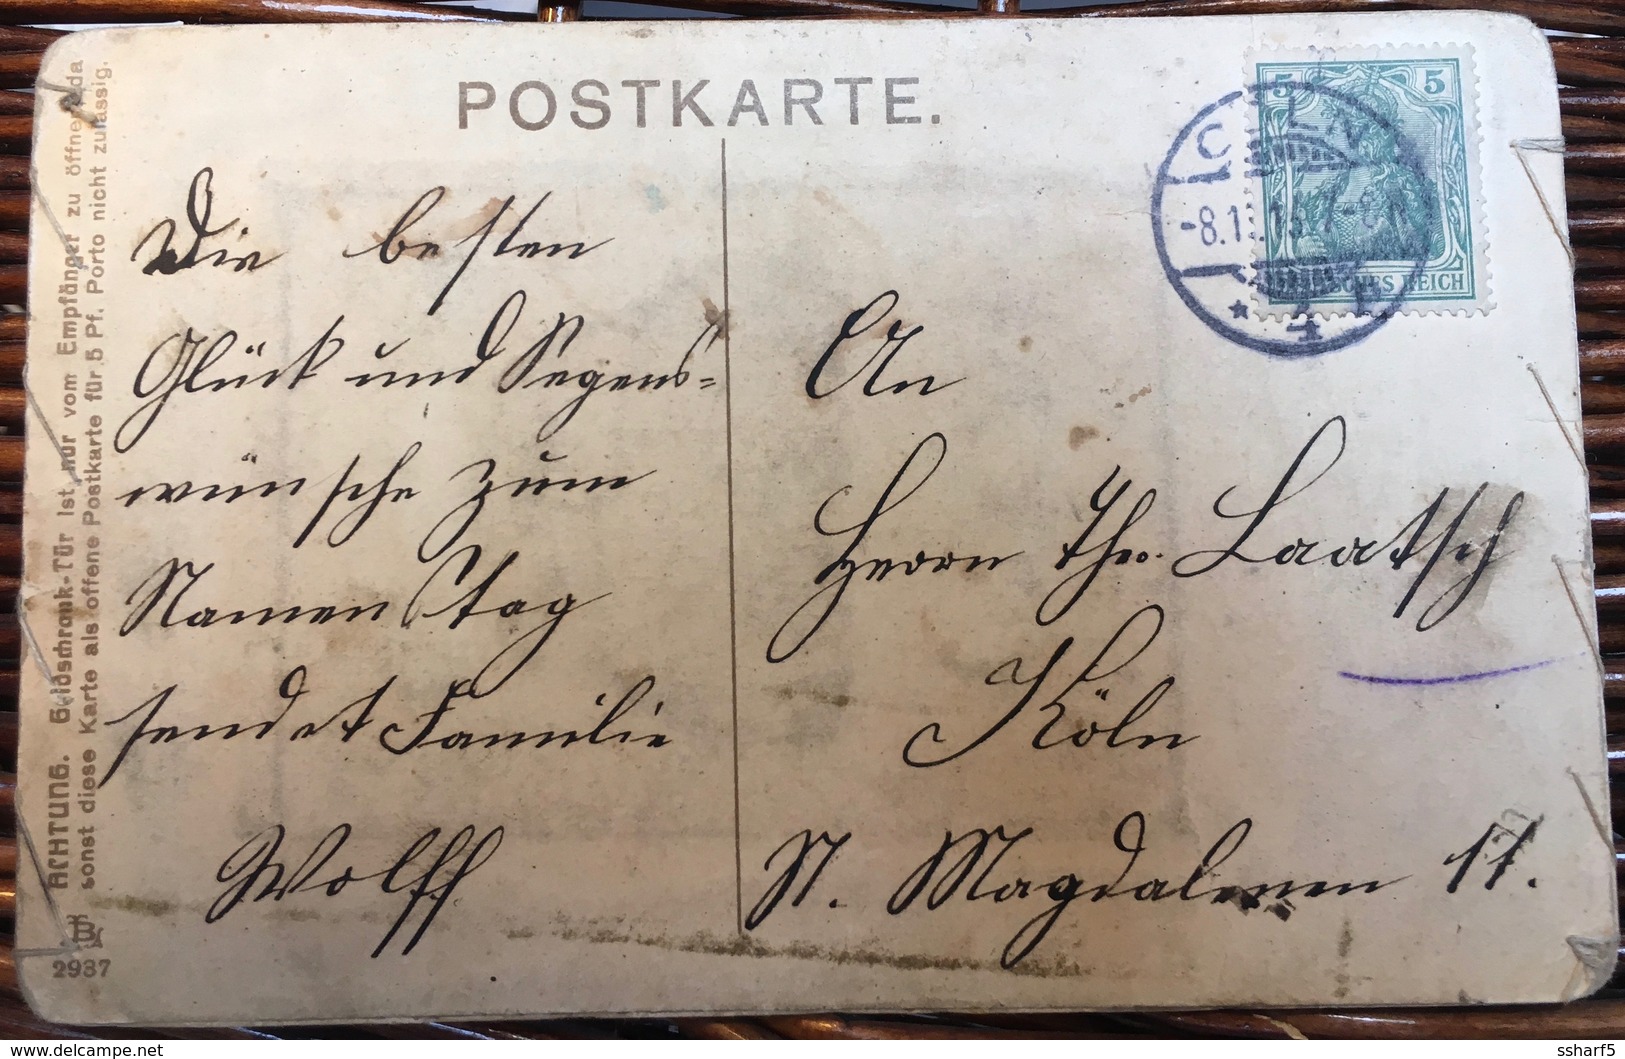 POSTKARTE.
Die besten
Glück und Segens=
wünsche zum
Namenstag
sendet Familie
Wolff
An
Herrn Th. Laatsch
Köln
St. Magdalenen 11.
5 5
DEUTSCHES REICH
CÖLN
-8.11.13. 7-8 N
* 1
ACHTUNG. Geldschrank-Tür ist nur vom Empfänger zu öffnen, da
sonst diese Karte als offene Postkarte für 5 Pf. Porto nicht zulässig.
2937
ssharf5